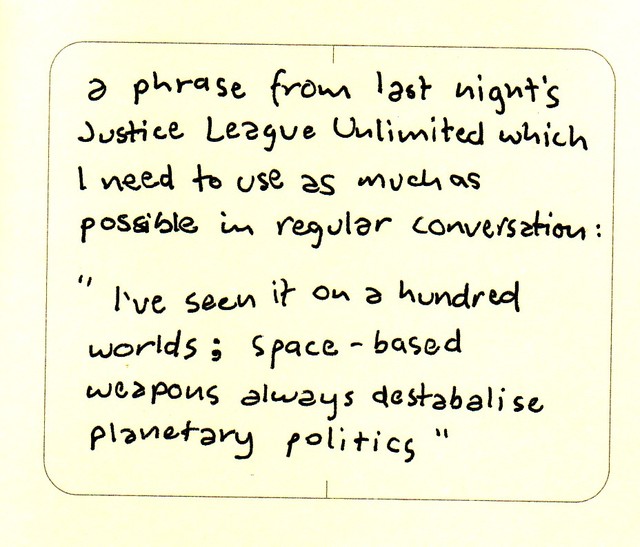 a phrase from last night's
Justice League Unlimited which
I need to use as much as
possible in regular conversation:
" I've seen it on a hundred
worlds; space-based
weapons always destabalise
planetary politics "